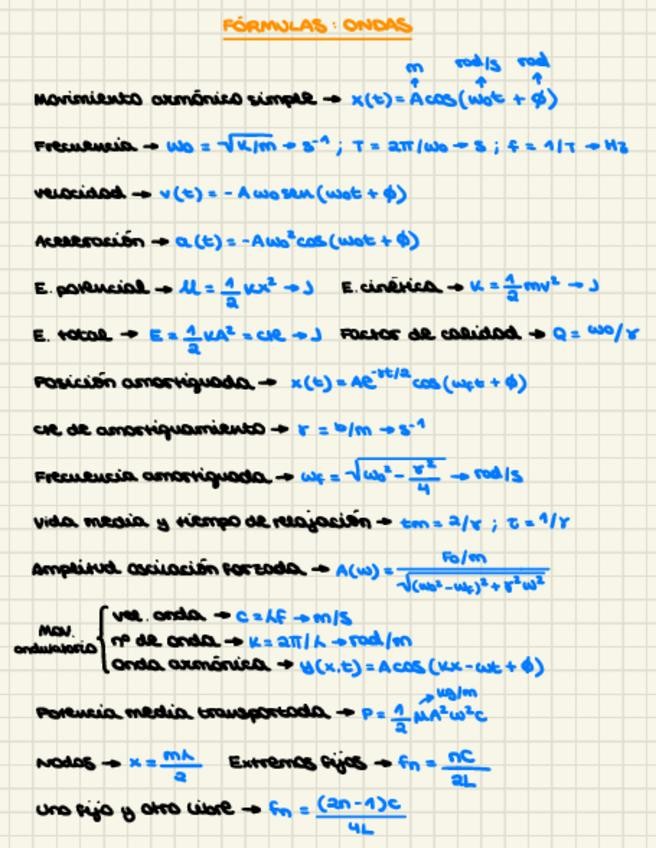 FÓRMULAS: ONDAS
m rad/s rad
↑ ↑ ↑
Movimiento armónico simple → x(t) = A cos(ω₀t + φ)
Frecuencia → ω₀ = √K/m → s⁻¹ ; T = 2π/ω₀ → s ; f = 1/T → Hz
velocidad → v(t) = - A ω₀ sen(ω₀t + φ)
Aceleración → a(t) = -Aω₀² cos(ω₀t + φ)
E. potencial → U = 1/2 Kx² → J E. cinética → K = 1/2 mv² → J
E. total → E = 1/2 KA² = cte → J Factor de calidad → Q = ω₀/γ
Posición amortiguada → x(t) = Ae^-γt/2 cos(ωft + φ)
cte de amortiguamiento → γ = b/m → s⁻¹
Frecuencia amortiguada → ωf = √ω₀² - γ²/4 → rad/s
Vida media y tiempo de relajación → tm = 2/γ ; τ = 1/γ
Amplitud oscilación forzada → A(ω) = F₀/m / √(ω₀² - ωf)² + γ²ω²
Mov. ondulatorio
vel. onda → c = λf → m/s
nº de onda → K = 2π/λ → rad/m
onda armónica → y(x,t) = A cos(Kx - ωt + φ)
kg/m
Potencia media transportada → P = 1/2 μA²ω²c
Nodos → x = mλ/2 Extremos fijos → fn = nC/2L
Uno fijo y otro libre → fn = (2n - 1)c/4L